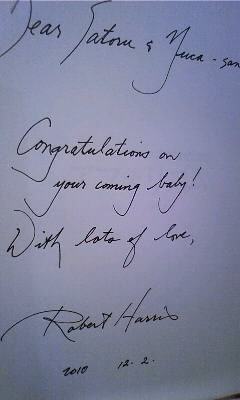 Dear Satoru & Yuca-san
Congratulations on
your coming baby!
With lots of love,
Robert Harris
2010 12. 2.